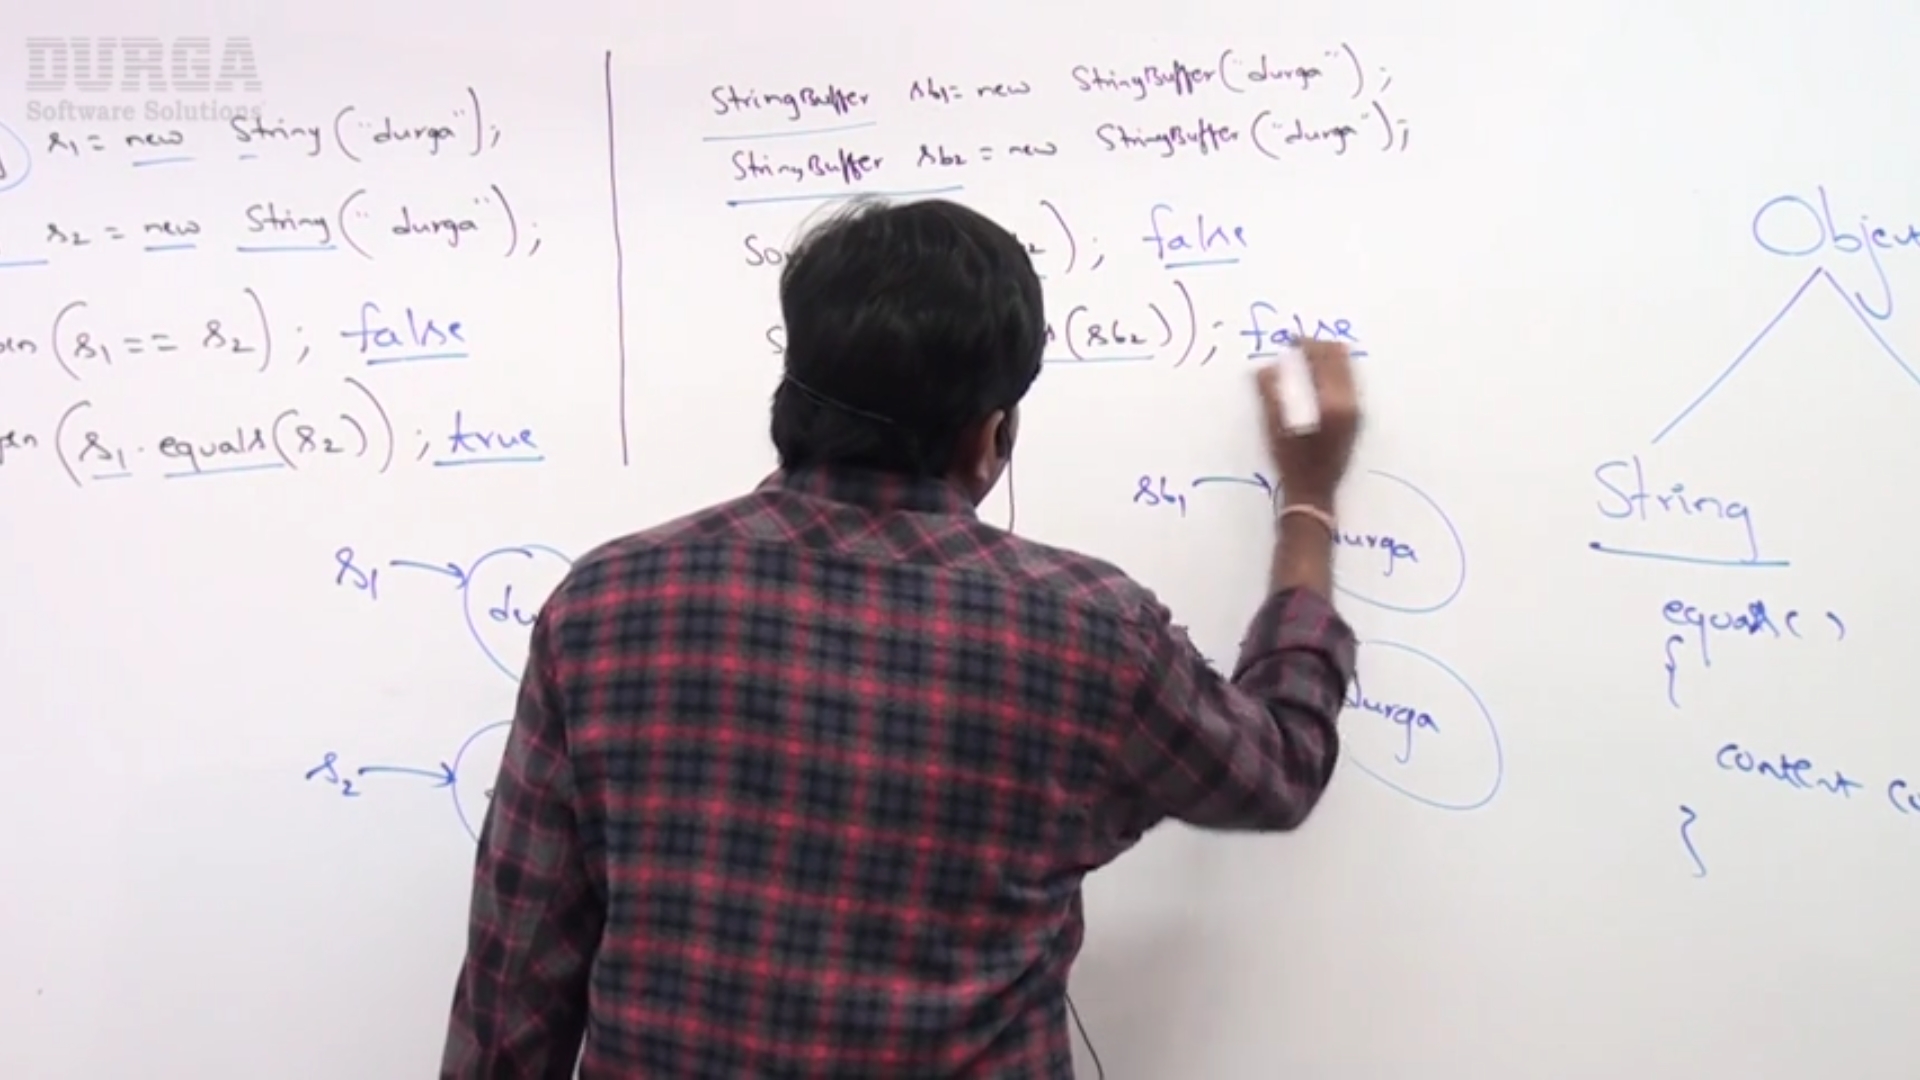 DURGA
Software Solutions
s1 = new String("durga");
s2 = new String("durga");
(s1 == s2); false
(s1.equals(s2)); true
s1
s2
StringBuffer sb1 = new StringBuffer("durga");
StringBuffer sb2 = new StringBuffer("durga");
); false
(sb2)); false
sb1
durga
durga
Object
String
equals()
{
content
}